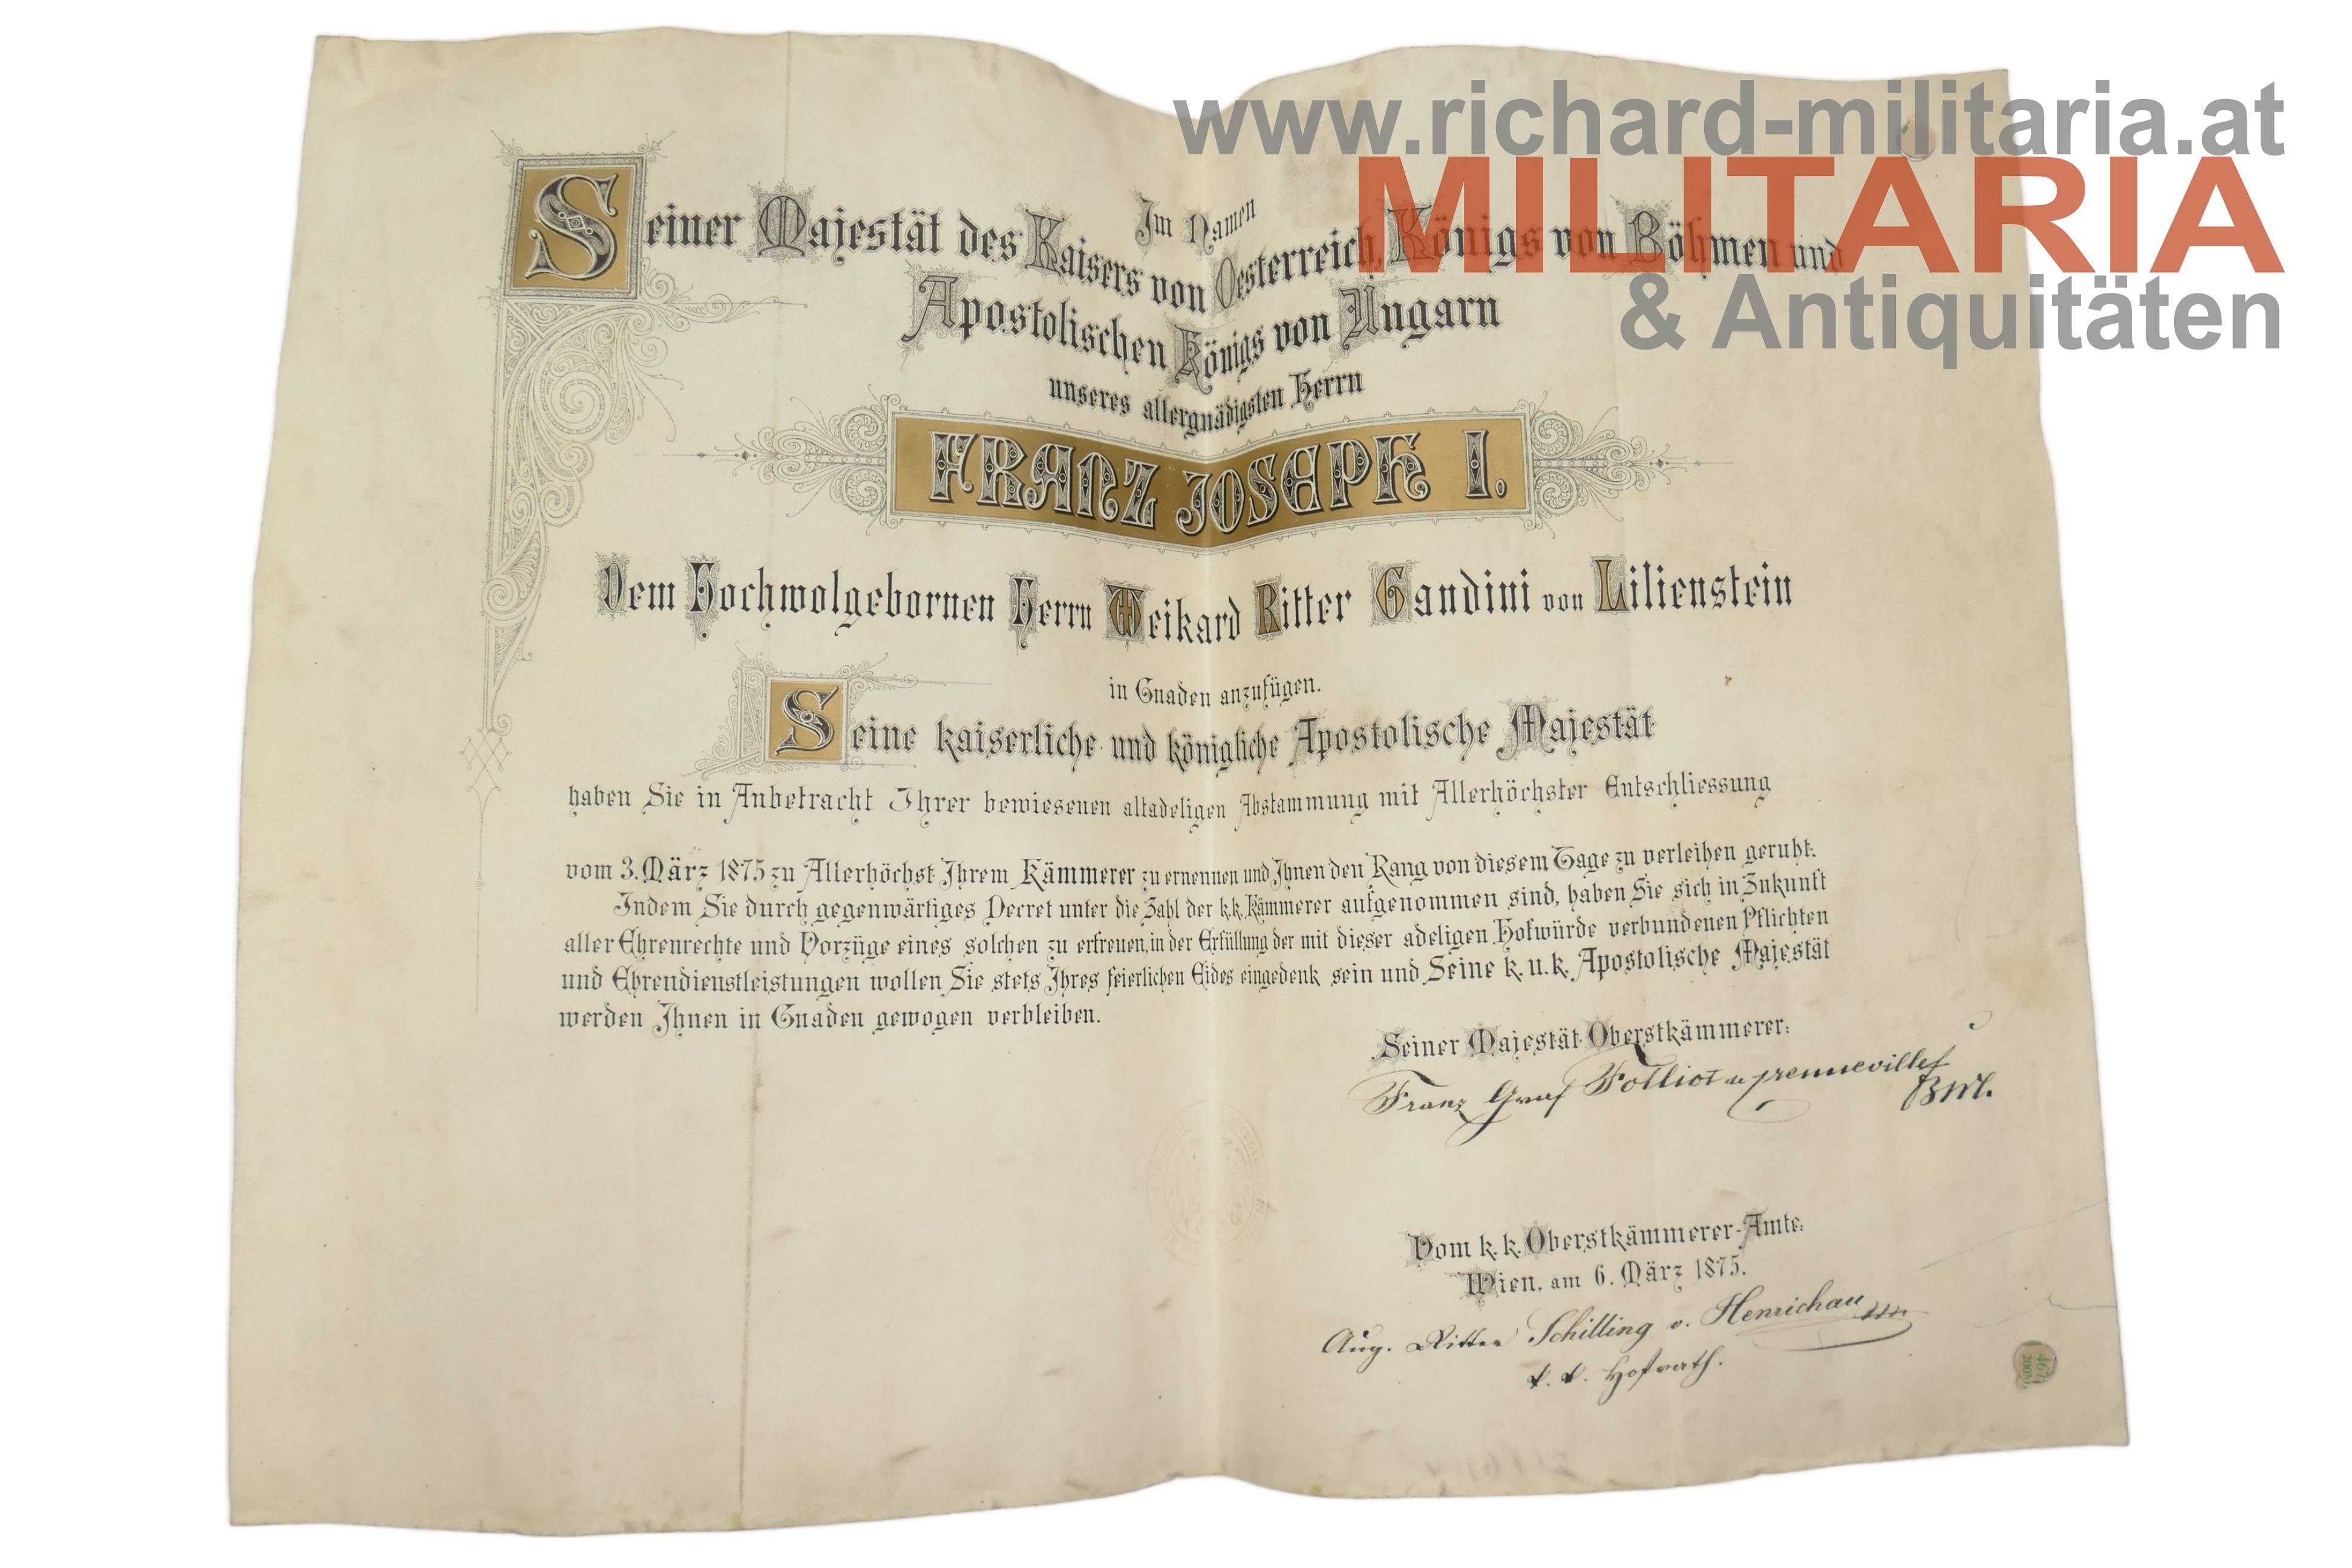 www.richard-militaria.at
MILITARIA
& Antiquitäten
Im Namen
Seiner Majestät des Kaisers von Oesterreich, Königs von Böhmen und
Apostolischen Königs von Ungarn
unseres allergnädigsten Herrn
FRANZ JOSEPH I.
Dem Hochwolgebornen Herrn Weikard Ritter Gandini von Lilienstein
in Gnaden anzufügen.
Seine kaiserliche und königliche Apostolische Majestät
haben Sie in Anbetracht Ihrer bewiesenen altadeligen Abstammung mit Allerhöchster Entschliessung
vom 3. März 1875 zu Allerhöchst Ihrem Kämmerer zu ernennen und Ihnen den Rang von diesem Tage zu verleihen geruht.
Indem Sie durch gegenwärtiges Decret unter die Zahl der k.k. Kämmerer aufgenommen sind, haben Sie sich in Zukunft
aller Ehrenrechte und Vorzüge eines solchen zu erfreuen, in der Erfüllung der mit dieser adeligen Hofwürde verbundenen Pflichten
und Ehrendienstleistungen wollen Sie stets Ihres feierlichen Eides eingedenk sein und Seine k. u. k. Apostolische Majestät
werden Ihnen in Gnaden gewogen verbleiben.
Seiner Majestät Oberstkämmerer:
Franz Graf Folliot de Crenneville
FZM.
Vom k. k. Oberstkämmerer-Amte.
Wien, am 6. März 1875.
Aug. Ritter Schilling v. Henrichau
k. k. Hofrath.